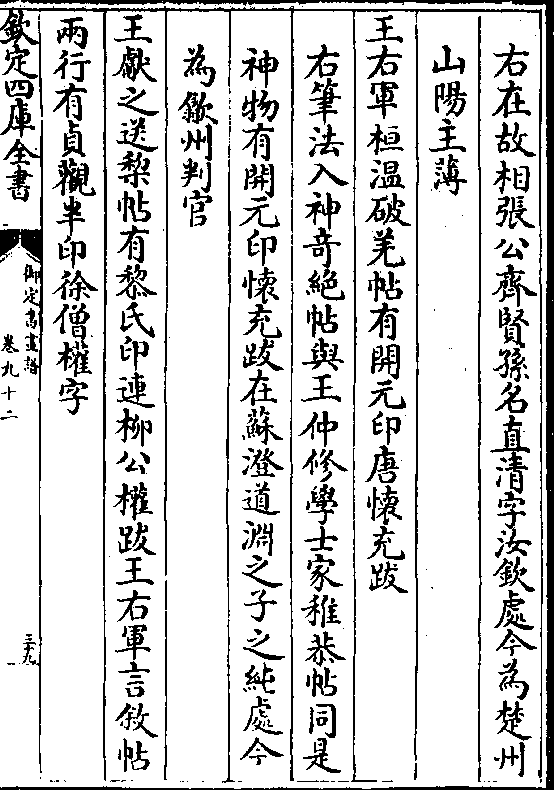 右在故相張公齊賢孫名直清字汝欽處今為楚州
山陽主薄
王右軍桓温破羌帖有開元印唐懷充跋
右筆法入神竒絶帖與王仲修學士家稚恭帖同是
神物有開元印懷充跋在蘇澄道淵之子之純處今
為歙州判官
王獻之送棃帖有黎氏印連柳公權跋王右軍言敘帖
兩行有貞觀半印徐僧權字
欽定四庫全書
御定書畫譜
卷九十二
三十九